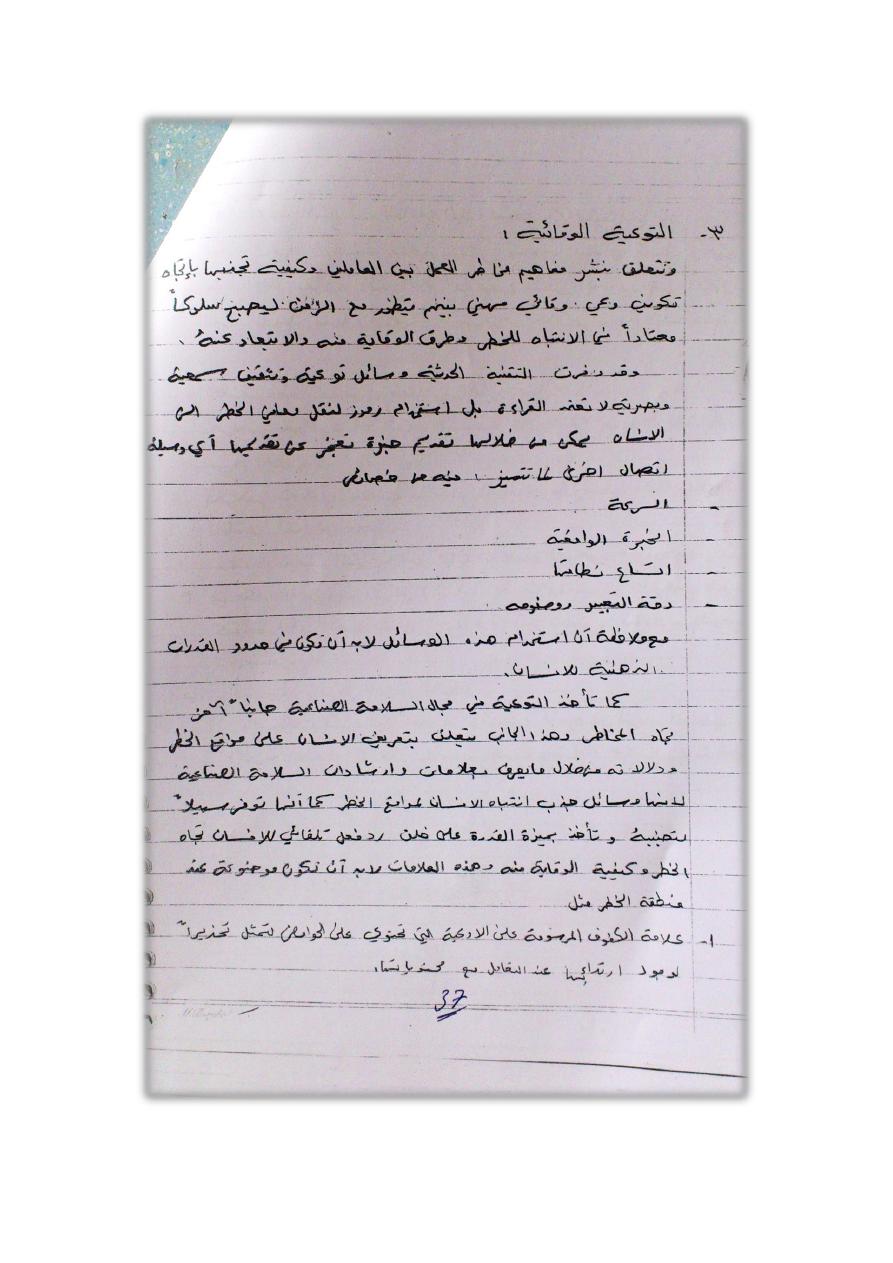 ٣- التوعية الوقائية :
وتتعلق بنشر مفاهيم مخاطر العمل بين العاملين وكيفية تجنبها بإتجاه
تكوين وعي وقائي مهني بينهم يتطور مع الزمن ليصبح سلوكاً
معتاداً في الانتباه للخطر وطرق الوقاية منه والابتعاد عنه .
وقد وفرت التقنية الحديثة وسائل توعية وتثقيف سمعية
وبصرية لا تعتمد القراءة بل استخدام رموز لنقل معاني الخطر الى
الانسان يمكن من خلالها تقديم خبرة تعجز عن تقديمها أي وسيلة
اتصال اخرى لما تتميز به من خصائص
- السرعة
- الخبرة الواقعية
- اتساع نطاقها
- دقة التعبير ووضوحه
مع ملاحظة أن استخدام هذه الوسائل لابد أن تكون في حدود القدرات
الذهنية للانسان.
كما تأخذ التوعية في مجال السلامة الصناعية جانباً آخر
تجاه المخاطر وهذا الجانب يتعلق بتعريف الانسان على مواقع الخطر
ودلالاته من خلال مايعرف بعلامات وارشادات السلامة الصناعية
لانها وسائل جذب انتباه الانسان لمواقع الخطر كما أنها توفر سبيلاً
لتجنبه وتأخذ بميزة القدرة على خلق رد فعل تلقائي للإنسان تجاه
الخطر وكيفية الوقاية منه وهذه العلامات لابد أن تكون موضوعة عند
منطقة الخطر مثل
١- علامة الكفوف المرسومة على الاوعية التي تحتوي على الحوامض لتمثل تحذيراً
ارتدائها عند التعامل مع محتوياتها.
37